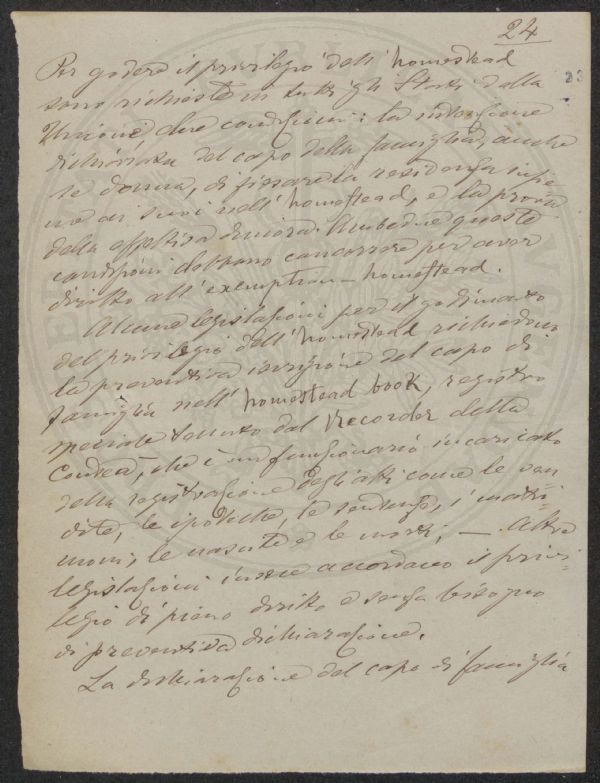 24
Per godere il privilegio dell' homestead
23
sono richieste in tutti gli Stati della
Unione, due condizioni: la intenzione
dichiarata del capo della famiglia, anche
se donna, di fissare la residenza
ne ai suoi nell' homestead, e la prova
della effettiva dimora. Ambedue queste
condizioni debbono concorrere per aver
diritto all' exemption-homestead.
Alcune legislazioni per il godimento
del privilegio dell' homestead richiedono
la preventiva iscrizione del capo di
famiglia nell' homestead book, registro
speciale tenuto dal Recorder della
Contea, che è un funzionario incaricato
della registrazione degli atti come le ven
dite, le ipoteche, le sentenze, i matri
moni, le nascite e le morti; — Altre
legislazioni invece accordano il privi
legio di pieno diritto e senza bisogno
di preventiva dichiarazione.
La dichiarazione del capo di famiglia